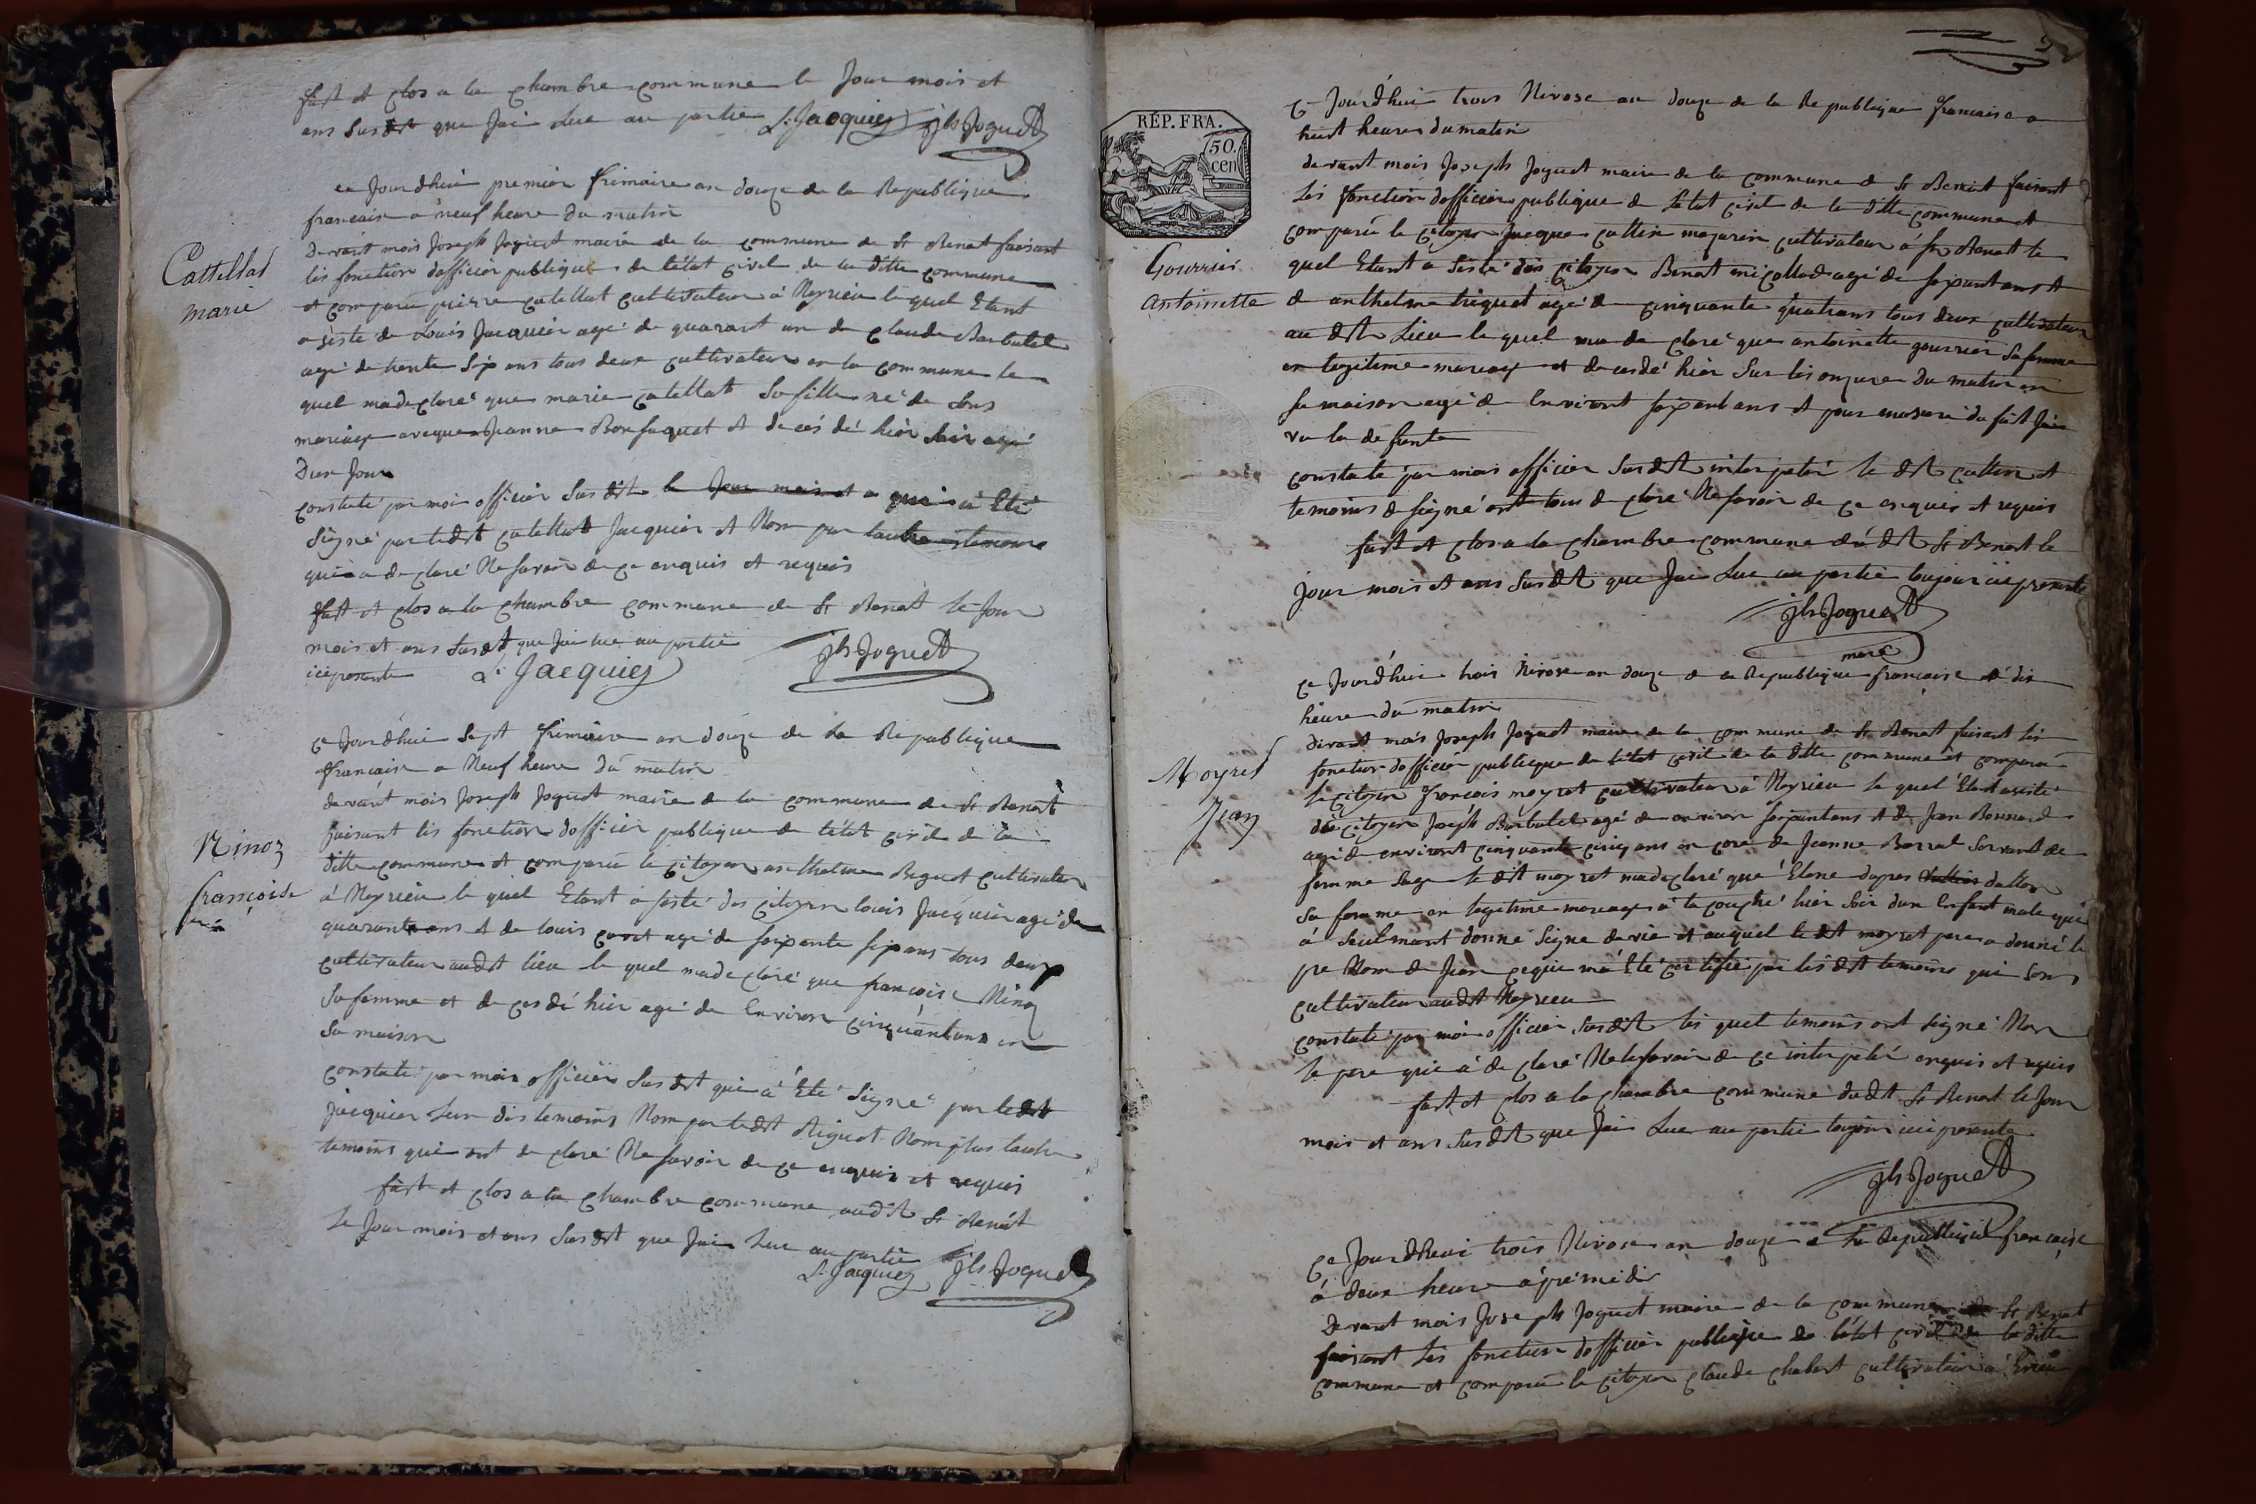 fait et clos a la chambre commune le Jour mois et
ans Susdit que Jai Lue au partie L. Jacquier jh Joguet
ce Jourdhui premier frimaire an douze de la Republique
francaise a neuf heure du matin
Devant mois Joseph Joguet maire de la commune de St Benoit faisant
Cattellat
marie
lés fonction dofficier publique de létat civil de la ditte commune
et comparu pierre catellat cultivateur à Neyrieu le quel Etant
asisté de Louis Jacquier agé de quarant an de claude Barbutel
agé de trente six ans tous deux cultivateur en la commune le
quel madeclaré que marie catellat Sa fille né de Sons
mariage avecque Jeanne Bonfaquet et decédé hier Soir agé
Dun Jour
constaté par moi officier Sus dit le Jour mois et a qui à Eté
Signé par ledit catellat Jacquier et Nom par lautre temoins
qui a declaré Ne Savoir de ce enquis et requis
fait et clos a la chambre commune de St Benoit le Jour
mois et ans Susdit que Jai lue au partie
ici presente L. Jacquier jh Joguet
ce Jourdhui Sept frimaire an douze de la Republique
francaise a Neuf heure du matin
devant mois Joseph Joguet maire de la commune de St Benoit
faisant lés fonction dofficier publique de létat civil de la
Ninoz
françoise
ditte commune et comparu le citoyen anthelme Biguet cultivateur
à Neyrieu le quel Etant a sisté des citoyen louis Jacquier agé de
quarante ans et de louis agé de soixante six ans tous deux
cultivateur audit lieu le quel made claré que francoise Ninoz
Sa femme et de cedé hier agé de Environ cinquantans en
Sa maison
constaté par mois officier Susdit qui à Eté Signé par ledit
Jacquier Lun des temoins Nom par ledit Riguet Nom plus lautre
temoins qui ont de claré Ne Savoir de ce enquis et requis
fait et clos a la chambre commune audit St Benoit
le Jour mois et ans Susdit que Jai Lue au partie
L. Jacquier jh Joguet
2
RÉP. FRA.
50.
cen
ce Jourdhui trois Nivose an douze de la Republique francaise a
huit heure du matin
devant mois Joseph Joguet maire de la commune de St Benoit faisant
lés fonction dofficier publique de létat civil de la ditte commune et
comparu le citoyen Jacque cultivateur à St Benoit le
Gourrier
antoinette
quel Etant a Sisté des citoyen Benoit agé de soixant ans et
de anthelme triquet agé de cinquante quatrans tous deux cultivateur
au dit Lieu le quel ma de claré que antoinette gourrier Sa femme
en legitime mariage et decedé hier Sur lés onzeure du matin en
Sa maison agé de Environt soixant ans et pour masuré du fait Jai
vu la de funte
constaté par mois officier Susdit interpelé le dit et
temoins de signé ont tous de claré Ne Savoir de ce enquis et requis
fait et clos a la chambre commune dudit St Benoit le
Jour mois et ans Susdit que Jai Lue au partie toujour ici presente
jh Joguet
maire
ce Jourdhui trois Nivose an douze de la Republique francaise a dix
heure du matin
devant mois Joseph Joguet maire de la commune de St Benoit faisant lés
fonction dofficier publique de létat civil de la ditte commune et comparu
Moyret
Jean
le citoyen francois moyret cultivateur à Neyrieu le quel Etant asisté
dés citoyen Joseph Barbutel agé de environ soixantans et de Jean Bonnard
agé de environt cinquante cinq ans en core de Jeanne Barral Servant de
femme Sage le dit moyret madeclaré que
Sa femme en legitime mariage à la couché hier Soir dun Enfant male qui
à Seulmant donné Signe de vie et auquel le dit moyret pere a donné le
pre Nom de Jean ce qui ma Eté certifié par lés dit temoins qui Sons
cultivateur audit Neyrieu
constaté par moi officier Susdit lés quel temoins ont Signé Non
le pere qui à de claré Ne le Savoir de ce interpelé enquis et requis
fait et clos a la chambre commune dudit St Benoit le Jour
mois et ans Susdit que Jai Lue au partie toujour ici presente
jh Joguet
ce Jourdhui trois Nivose an douze de la Republique francaise
à deux heure aprémidi
Devant mois Joseph Joguet maire de la commune de St Benoit
faisant lés fonction dofficier publique de létat civil de la ditte
commune et comparu le citoyen claude chabert cultivateur à